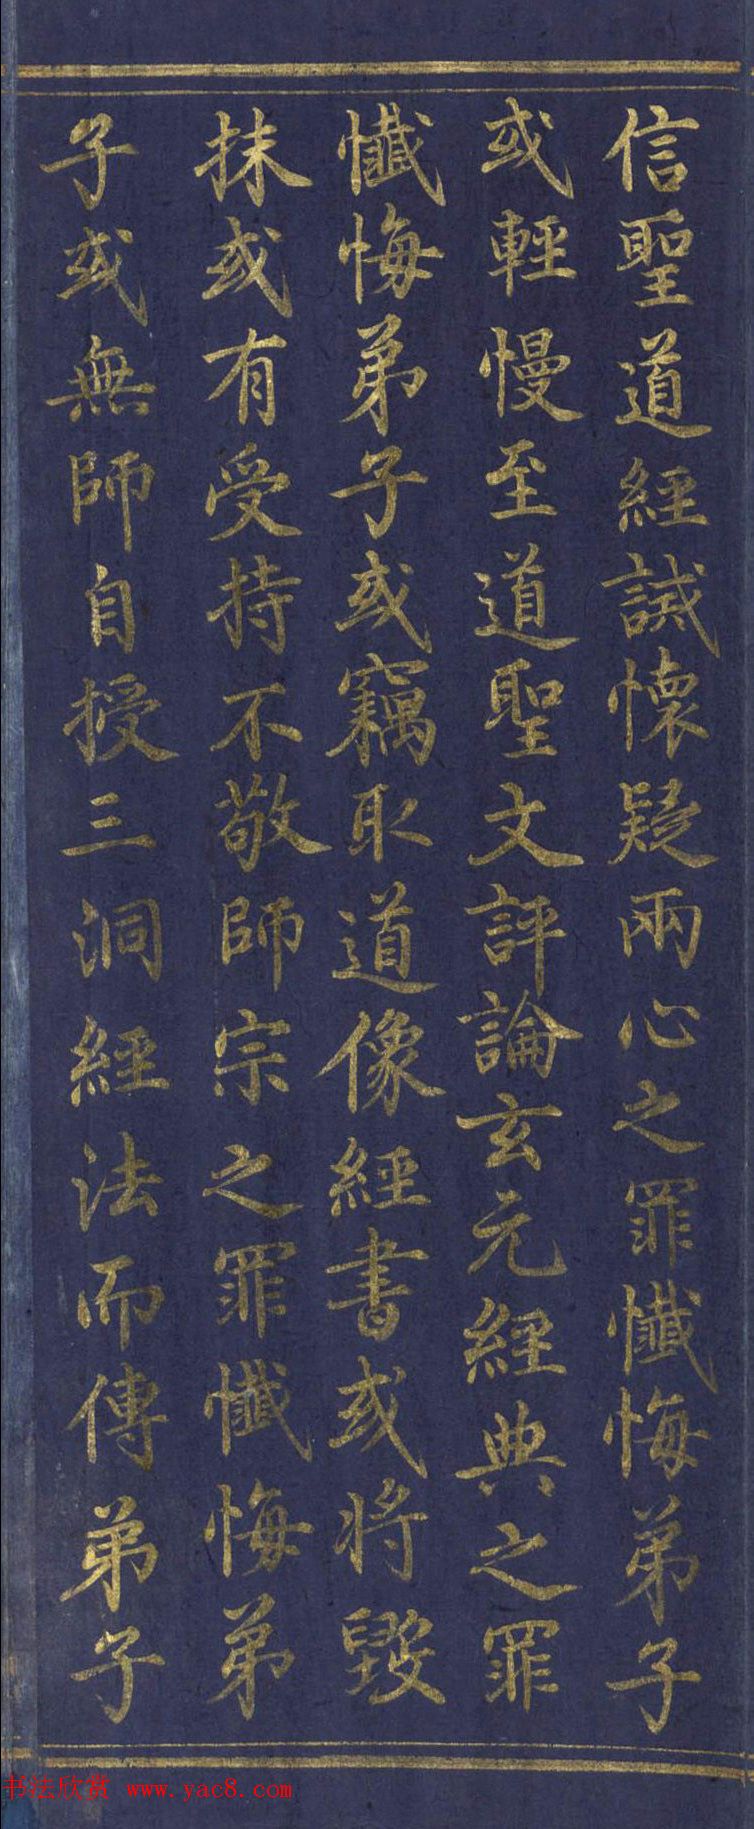 信聖道經誡懷疑兩心之罪懺悔弟子
或輕慢至道聖文評論玄元經典之罪
懺悔弟子或竊取道像經書或將毀
抹或有受持不敬師宗之罪懺悔弟
子或無師自授三洞經法而傳弟子
书法欣赏 www.yac8.com